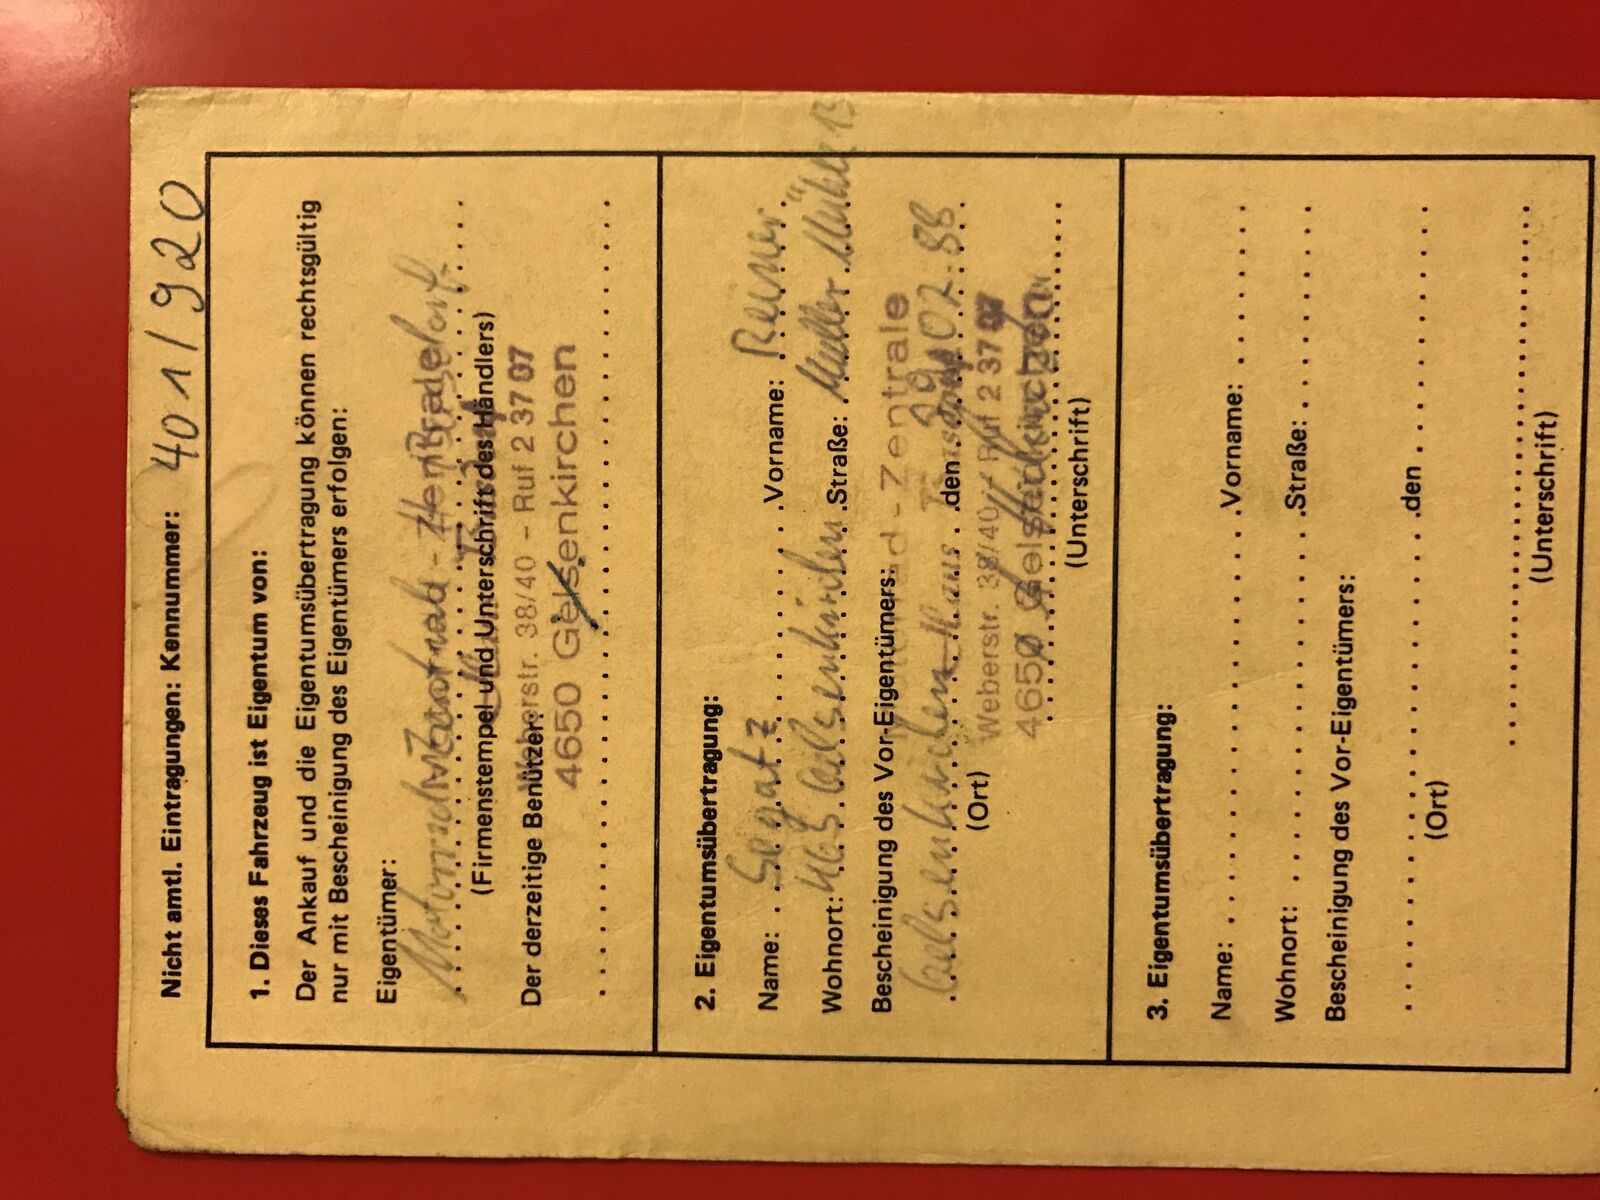 Nicht amtl. Eintragungen: Kennummer: 401/920
1. Dieses Fahrzeug ist Eigentum von:
Der Ankauf und die Eigentumsübertragung können rechtsgültig
nur mit Bescheinigung des Eigentümers erfolgen:
Eigentümer:
(Firmenstempel und Unterschrift des Händlers)
Weberstr. 38/40 - Ruf 2 37 07
Der derzeitige Benützer:
4650 Gelsenkirchen
2. Eigentumsübertragung:
Name: Segatz Vorname: Reiner
Wohnort: 465 Gelsenkirchen Straße: 13
Bescheinigung des Vor-Eigentümers:
d-Zentrale
Gelsenkirchen den 02.88
(Ort)
Weberstr. 38/40 - Ruf 2 37 07
4650 Gelsenkirchen
(Unterschrift)
3. Eigentumsübertragung:
Name: Vorname:
Wohnort: Straße:
Bescheinigung des Vor-Eigentümers:
den
(Ort)
(Unterschrift)